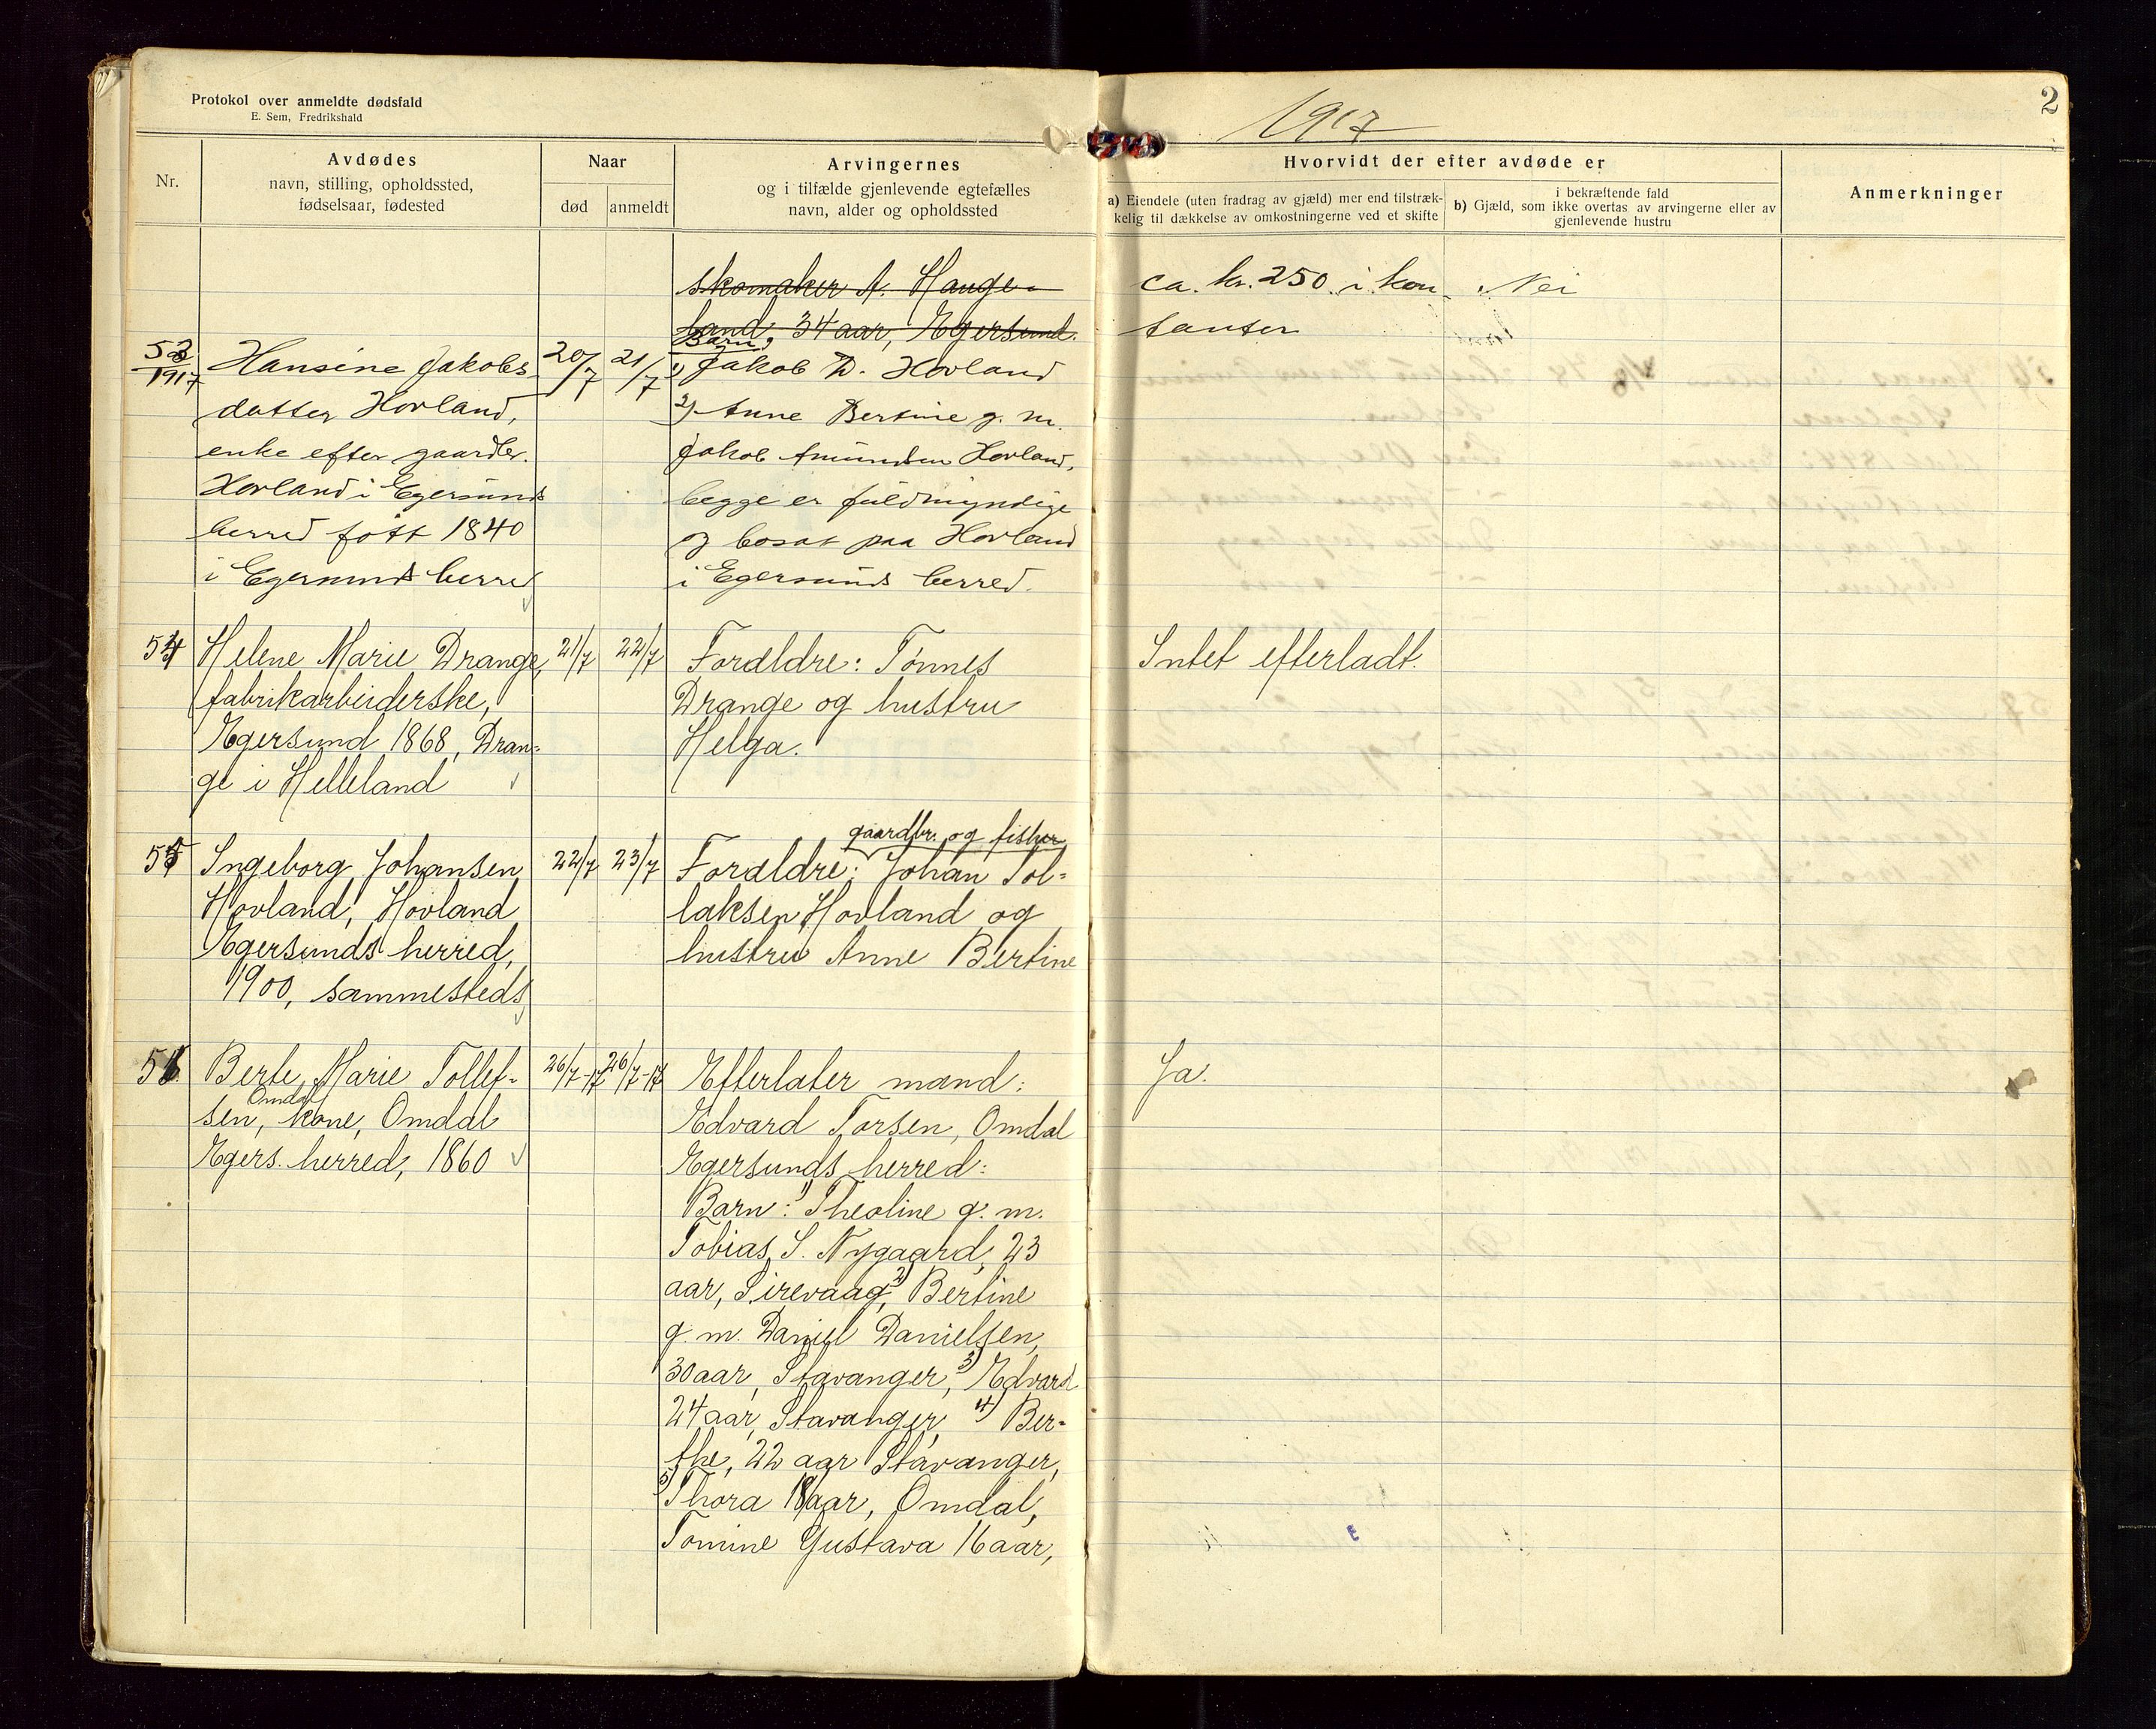 Protokol over anmeldte dødsfald
E. Sem, Fredrikshald
1917
2
Nr.
Avdødes
navn, stilling, opholdssted,
fødselsaar, fødested
Naar
død
anmeldt
Arvingernes
og i tilfælde gjenlevende egtefælles
navn, alder og opholdssted
Hvorvidt der efter avdøde er
a) Eiendele (uten fradrag av gjæld) mer end tilstræk-
kelig til dækkelse av omkostningerne ved et skifte
i bekræftende fald
b) Gjæld, som ikke overtas av arvingerne eller av
gjenlevende hustru
Anmerkninger
skomaker A. Hauge-
land, 34 aar, Egersund.
ca. kr. 250 i kon-
tanter
Nei
53
1917
Hansine Jakobs-
datter Hovland,
enke efter gaardbr.
Hovland i Egersunds
herred født 1840
i Egersunds herred
20/7
21/7
Barn:
1) Jakob D. Hovland
2) Anne Bertine g. m.
Jakob Amundsen Hovland,
begge er fuldmyndige
og bosat paa Hovland
i Egersunds herred.
54
Helene Marie Drange,
fabrikarbeiderske,
Egersund 1868, Dran-
ge i Helleland
21/7
22/7
Forældre: Tønnes
Drange og hustru
Helga.
Intet efterladt.
55
Ingeborg Johansen
Hovland, Hovland
Egersunds herred,
1900, sammesteds
22/7
23/7
gaardbr. og fisker
Forældre: Johan Tol-
laksen Hovland og
hustru Anne Bertine
56
Berte Marie Tollef-
Omdal
sen, kone, Omdal
Egers. herred, 1860
26/7-17
26/7-17
Efterlater mand:
Edvard Torsen, Omdal
Egersunds herred:
Barn: 1) Theoline g. m.
Tobias S. Nygaard, 23
aar, Sirevaag, 2) Bertine
g. m. Daniel Danielsen,
30 aar, Stavanger, 3) Edvard
24 aar, Stavanger, 4) Ber-
the, 22 aar Stavanger,
5) Thora 18 aar, Omdal,
Tomine Gustava 16 aar,
Ja.
E